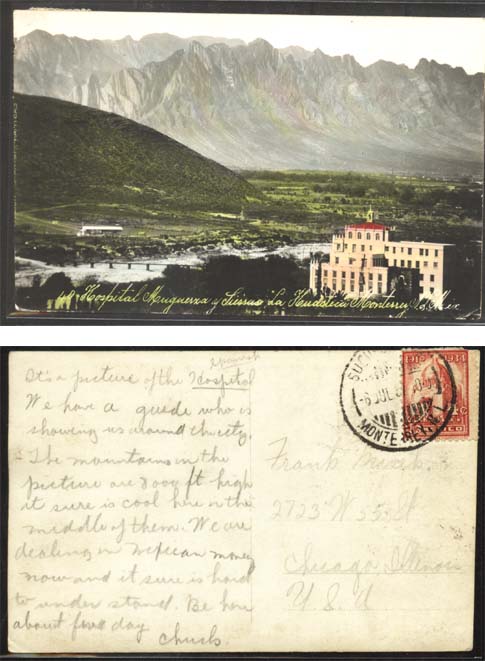 48-Hospital Muguerza y Sierras "La Huasteca" Monterrey, N.L. Mex
Spanish
It's a picture of the Hospital
We have a guide who is
showing us around the city.
The mountains in the
picture are 8000 ft high
it sure is cool here in the
middle of them. We are
dealing in mexican money
now and it sure is hard
to under stand. Be here
about five day
Chuck.
SUC
6 JUL
MONTERREY
1934
Frank
2723 W 55 St
Chicago, Illinois
U. S. A